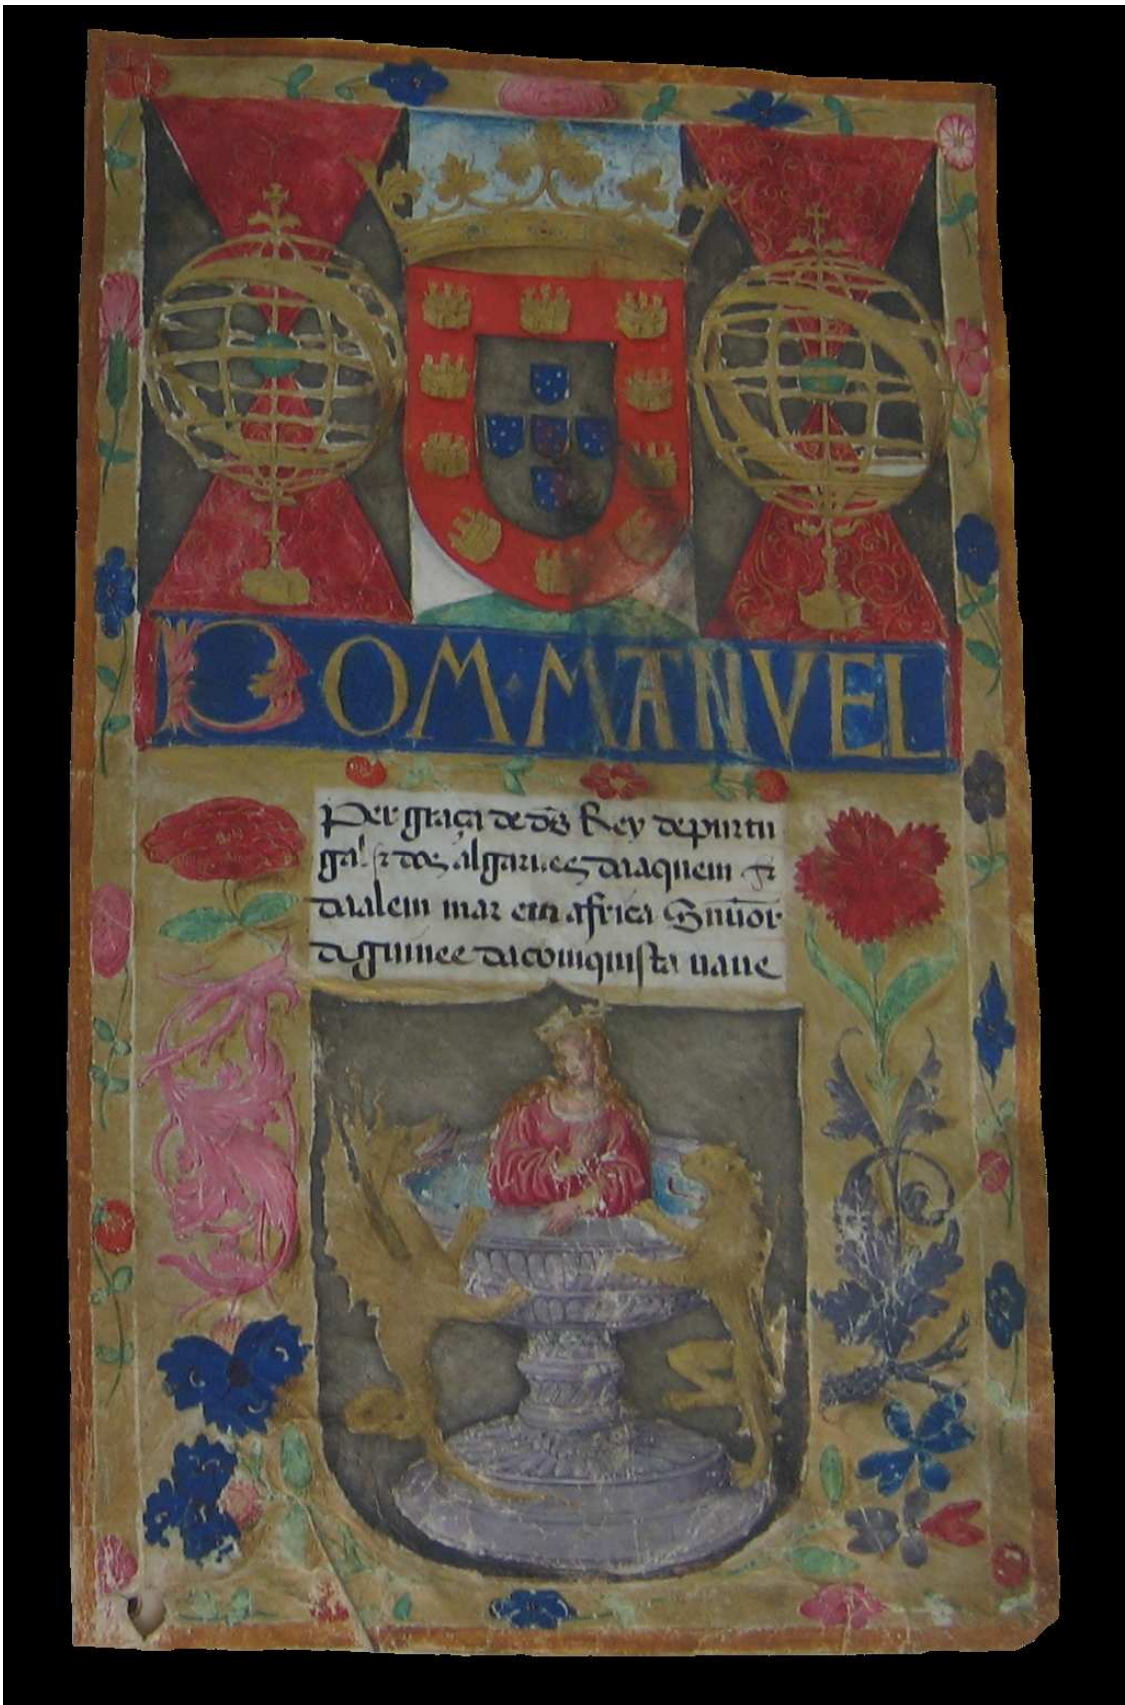 DOM·MANVEL
Per graça de d̄s Rey depurtu
gal ⁊ dos algarues daaquem ⁊
daalem mar em africa Snn̄or
de guinee daconquista naue